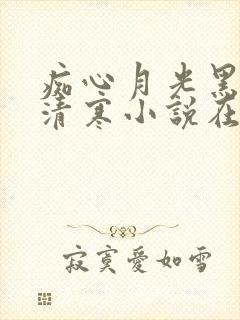 痴心月光黑
清寒小說在
寂寞愛如雪